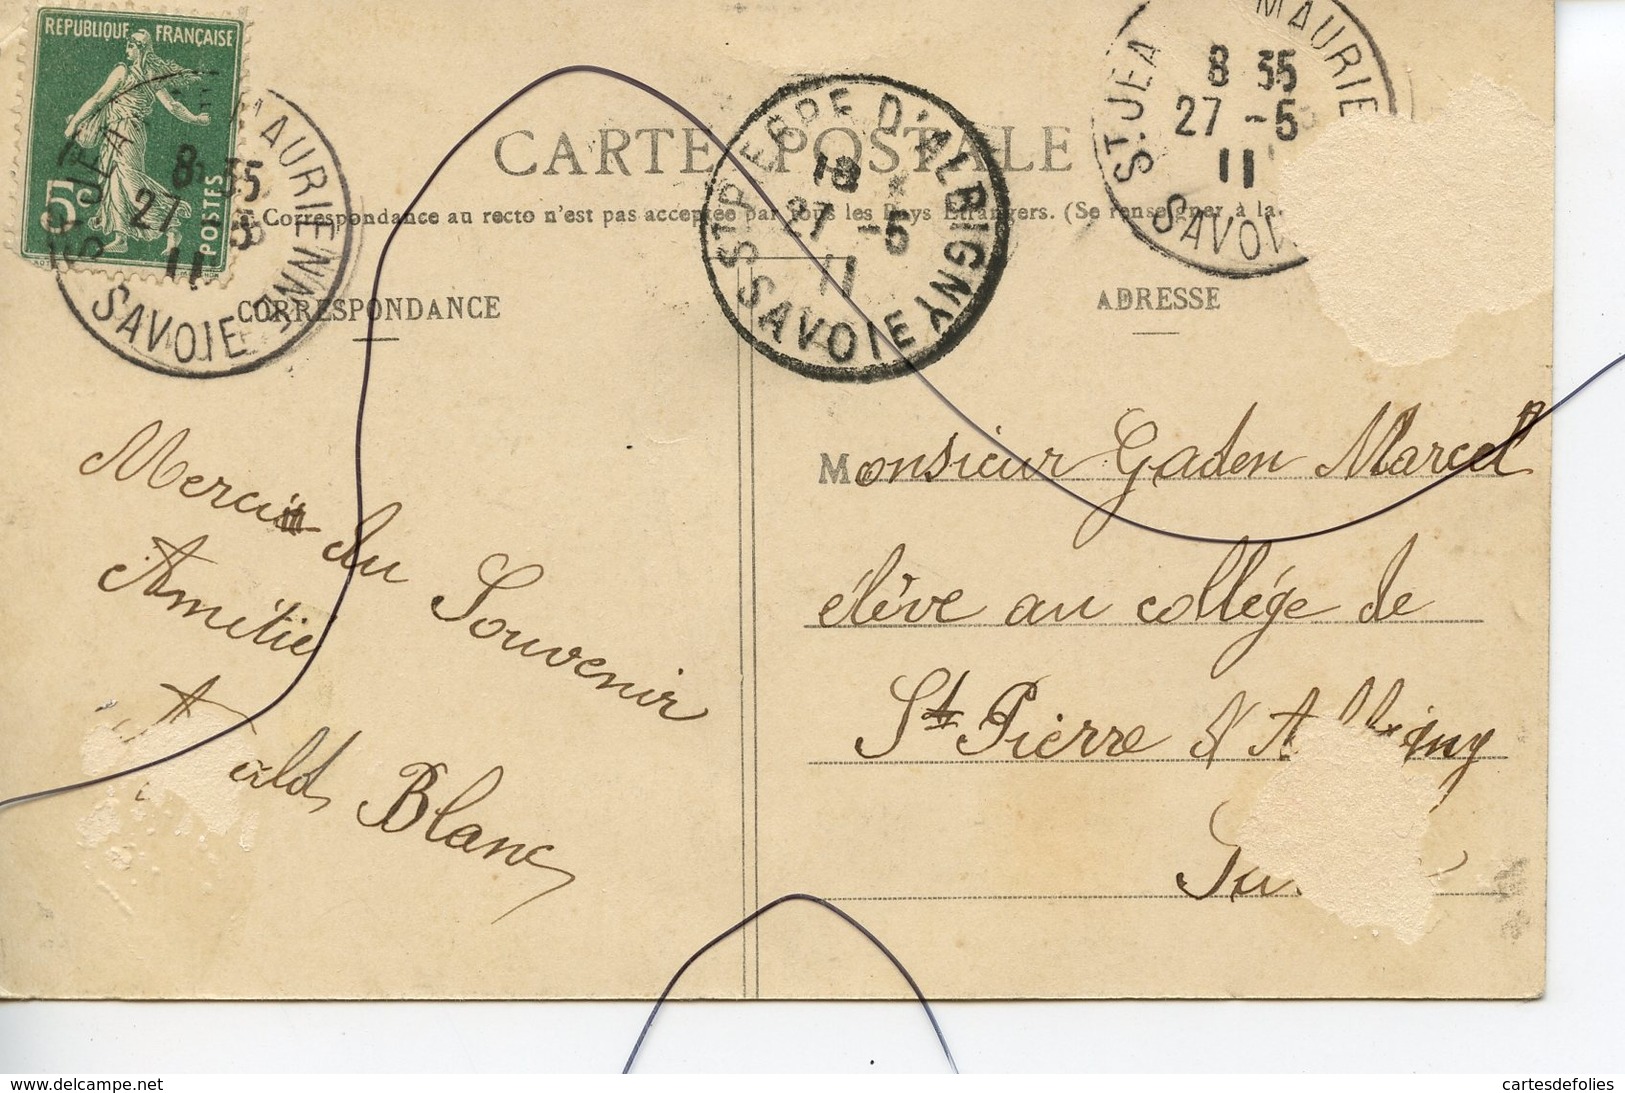 REPUBLIQUE FRANÇAISE
5c POSTES
ST JEA MAURIENNE
8 35
27 -5
11
SAVOIE
ST PIERRE D'ALBIGNY
18 *
27 -5
11
SAVOIE
ST JEA MAURIE
8 35
27 -5
11
SAVOI
CARTE POSTALE
Correspondance au recto n'est pas acceptée par tous les Pays Etrangers. (Se renseigner à la
CORRESPONDANCE
ADRESSE
Merci du Souvenir
Amitié
Blanc
Monsieur Gaden Marcel
élève au collége de
St Pierre d'Albigny
delcampe.net
cartesdefolies